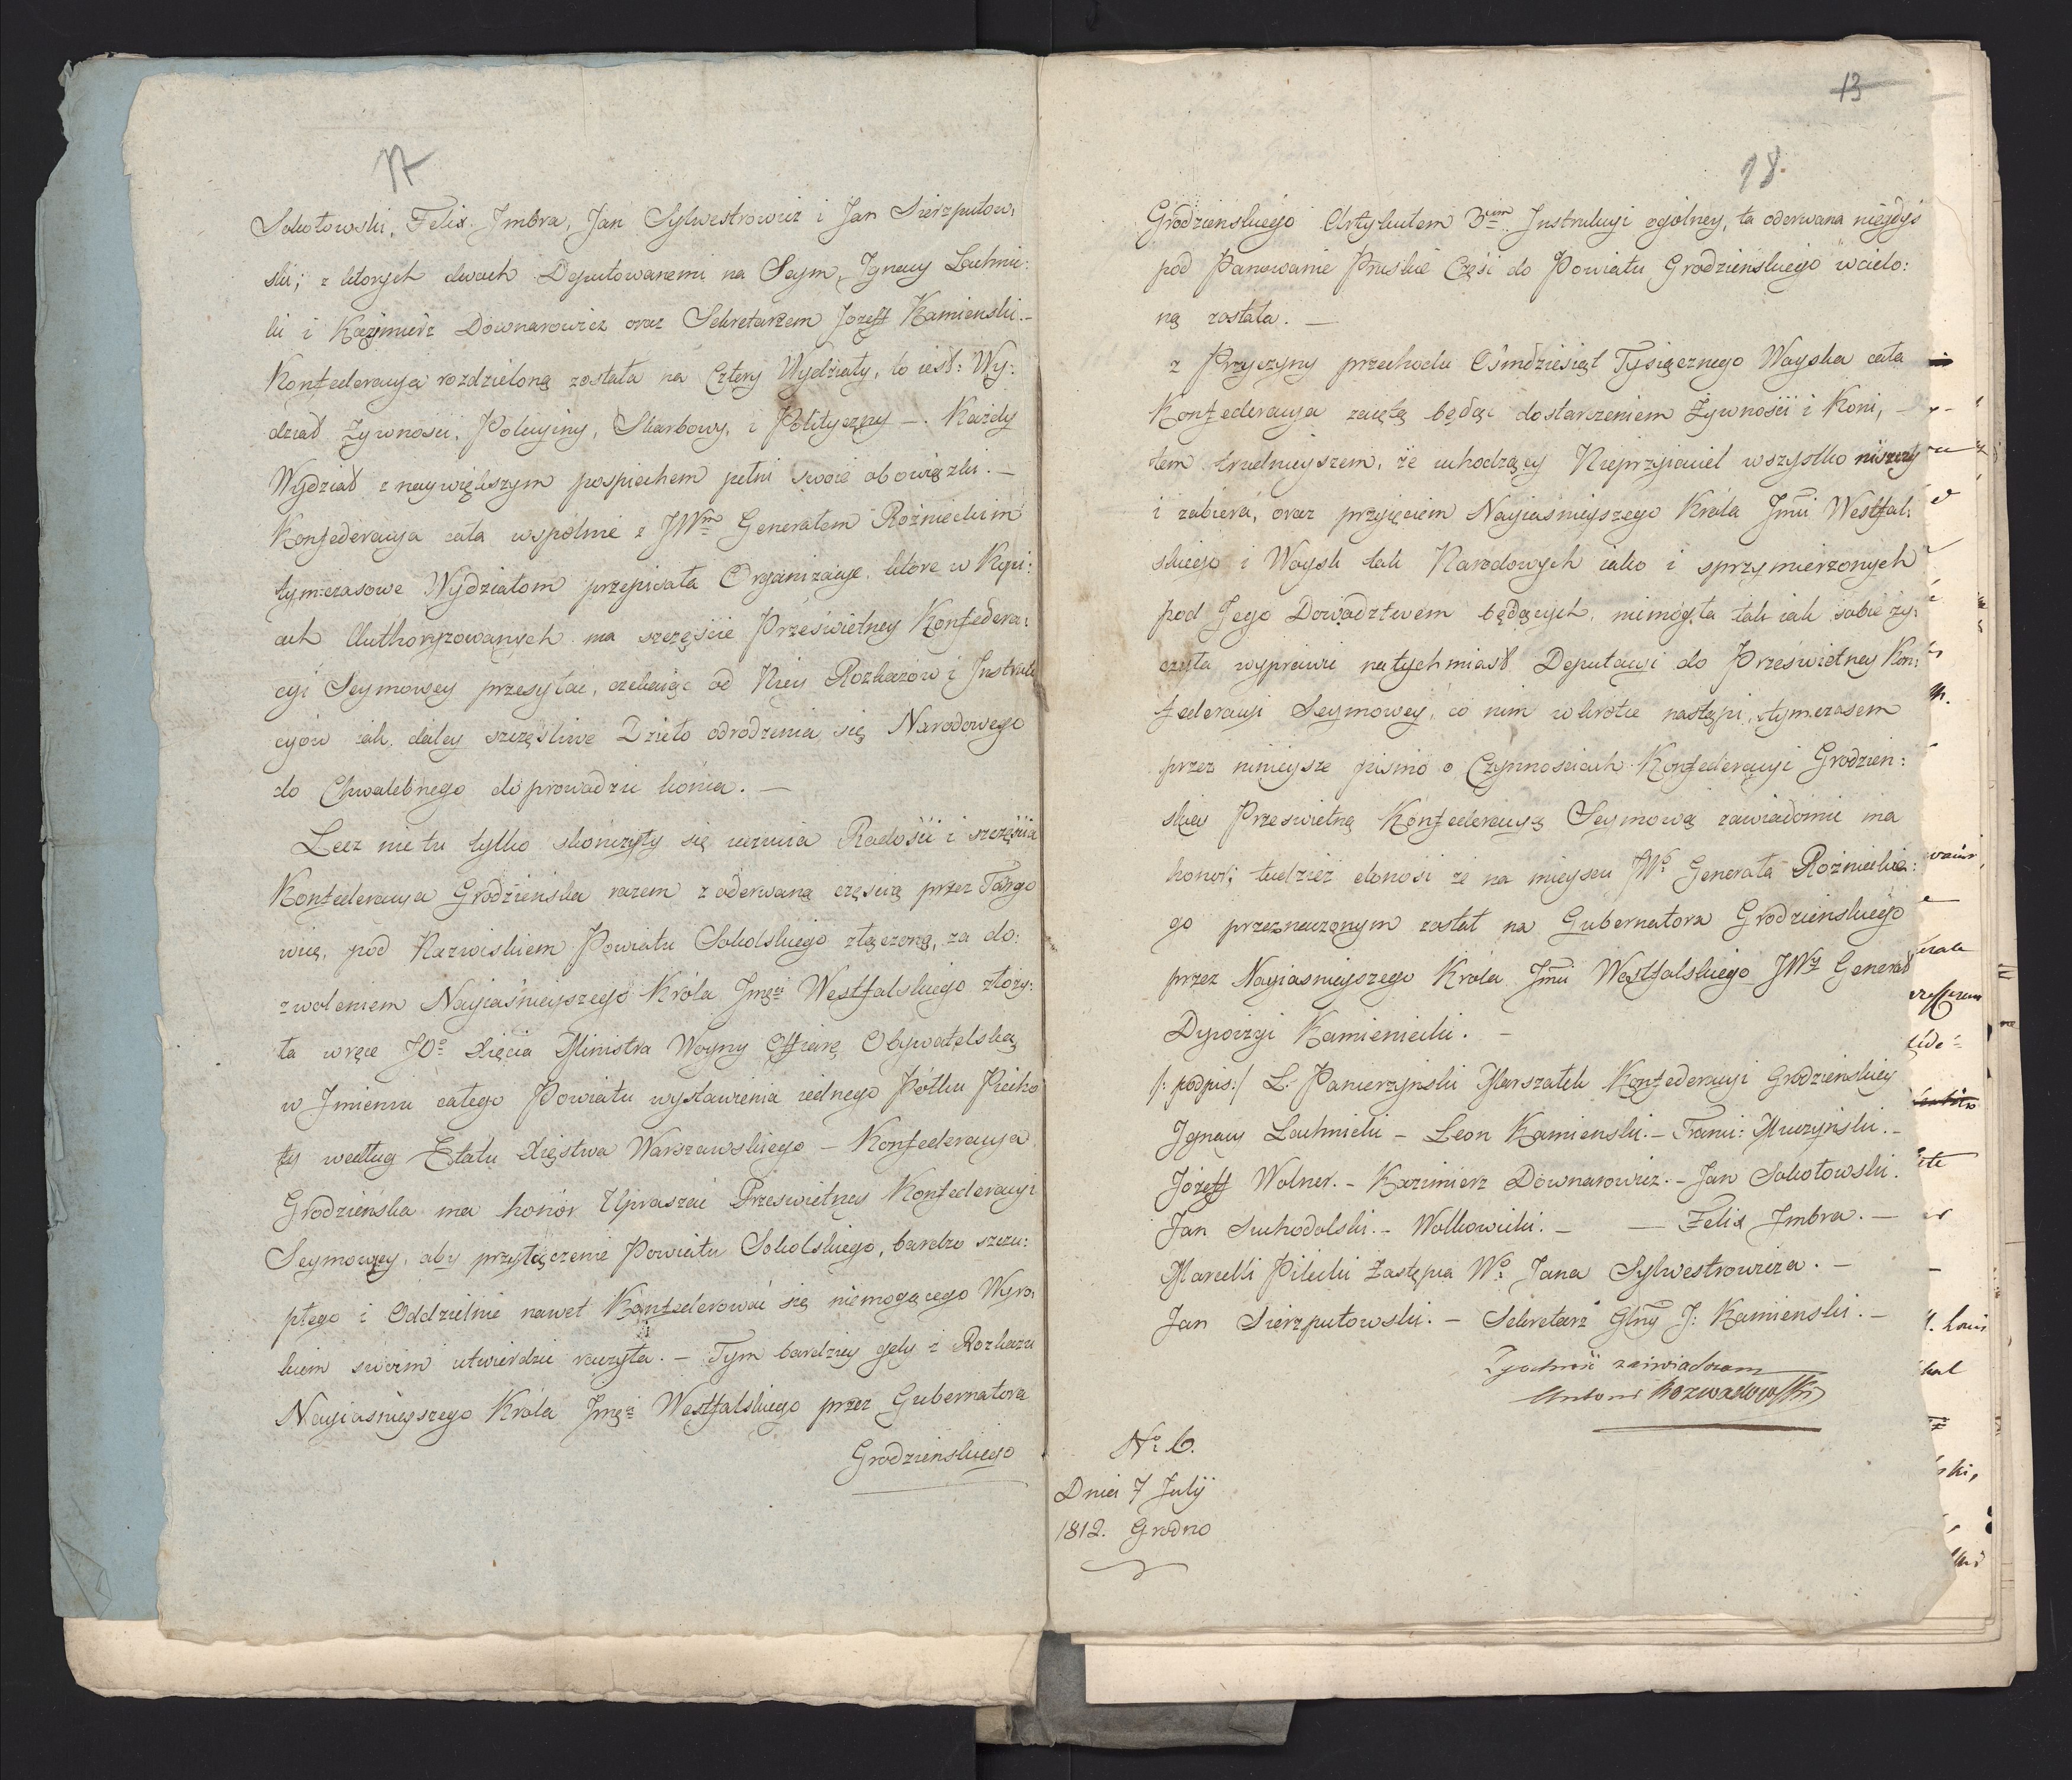 17
Sokołowski, Felix Jmbra, Jan Sylwestrowicz i Jan Sierzputow:
ski; z ktorych dwoch Deputowanemi na Seym, Jgnacy Lachnic:
ki i Kazimierz Downarowicz oraz Sekretarzem Jozeff Kamienski.—
Konfederacya rozdzieloną została na Cztery Wydziały, to iest: Wy:
dział Zywnosci, Policyiny, Skarbowy, i Polityczny —. Każdy
Wydział z naywiększym pospiechem pełni swoie obowiązki. —
Konfederacya cała wspólnie z JWm Generałem Rożnieckim
tymczasowe Wydziałom przepisała Organizacye, ktore w Kopi:
ach Authoryzowanych ma szczęście Prześwietney Konfedera:
cyi Seymowey przesyłac, czekaiąc od Niey Rozkazów i Instruk
cyów iak daley szczęśliwe Dzieło odrodzenia się Narodowego
do Chwalebnego doprowadzic końca. —
Lecz nie tu tylko skonczyły się uczucia Radości i szczęścia
Konfederacya Grodzieńska razem z oderwaną częscią przez Targo
wicę, pod Nazwiskiem Powiatu Sokolskiego złączoną, za do:
zwoleniem Nayiaśnieyszego Króla Jmści Westfalskiego złoży:
ła w ręce JO Xięcia Ministra Woyny Offiarę Obywatelską
w Jmieniu całego Powiatu wystawienia iednego Półku Piecho
ty według Etatu Xięstwa Warszawskiego — Konfederacya
Grodzieńska ma honór Upraszać Prześwietney Konfederacyi
Seymowey, aby przyłączenie Powiatu Sokolskiego, bardzo szczu:
płego i Oddzielnie nawet Konfederować się niemogącego Wyro:
kiem swoim utwierdzic raczyła. — Tym bardziey gdy z Rozkazu
Nayiasnieyszego Króla Jmści Westfalskiego przez Gubernatora
Grodzienskiego
13
18.
Grodzienskiego Artykułem 3cim Jnstrukcyi ogólney, ta oderwana niegdyś
pod Panowanie Pruskie Część do Powiatu Grodzieńskiego wcielo:
ną została. —
z Przyczyny przechodu Ośmdziesiąt Tysięcznego Woyska cała
Konfederacya zaiętą będąc dostarczeniem Żywności i Koni, —
tem trudnieyszem, że uchodzący Nieprzyiaciel wszystko niszczy
i zabiera, oraz przyięciem Nayiaśnieyszego Króla Jmci Westfal:
skiego i Woysk tak Narodowych iako i sprzymierzonych
pod Jego Dowództwem będących, niemogła tak iak sobie ży:
czyła wyprawić natychmiast Deputacyi do Prześwietney Kon:
federacyi Seymowey, co nim wkrótce nastąpi, tymczasem
przez ninieysze pismo o Czynnościach Konfederacyi Grodzień:
skiey Prześwietną Konfederacyą Seymową zawiadomić ma
honor; tudzież donosi że na mieyscu JWo Generała Rożnieckie:
go przeznaczonym został na Gubernatora Grodzienskiego
przez Nayiasnieyszego Króla Jmci Westfalskiego JWy Generał
Dywizyi Kamieniecki. —
/: podpis:/ L. Pancerzyński Marszałek Konfederacyi Grodzieńskiey
Jgnacy Lachnicki — Leon Kamienski. — Franci: Muczyński. —
Józeff Wolmer. — Kazimierz Downarowicz. — Jan Sokołowski.
Jan Suchodolski. — Wołkowicki. — — Felix Jmbra. —
Marcelli Pilecki Zastępca Wo Jana Sylwestrowicza. —
Jan Sierzputowski. — Sekretarz Glny J: Kamienski. —
Zgodność zaświadczam
Antoni Rozwadowski
No 6.
Dnia 7 July
1812. Grodno